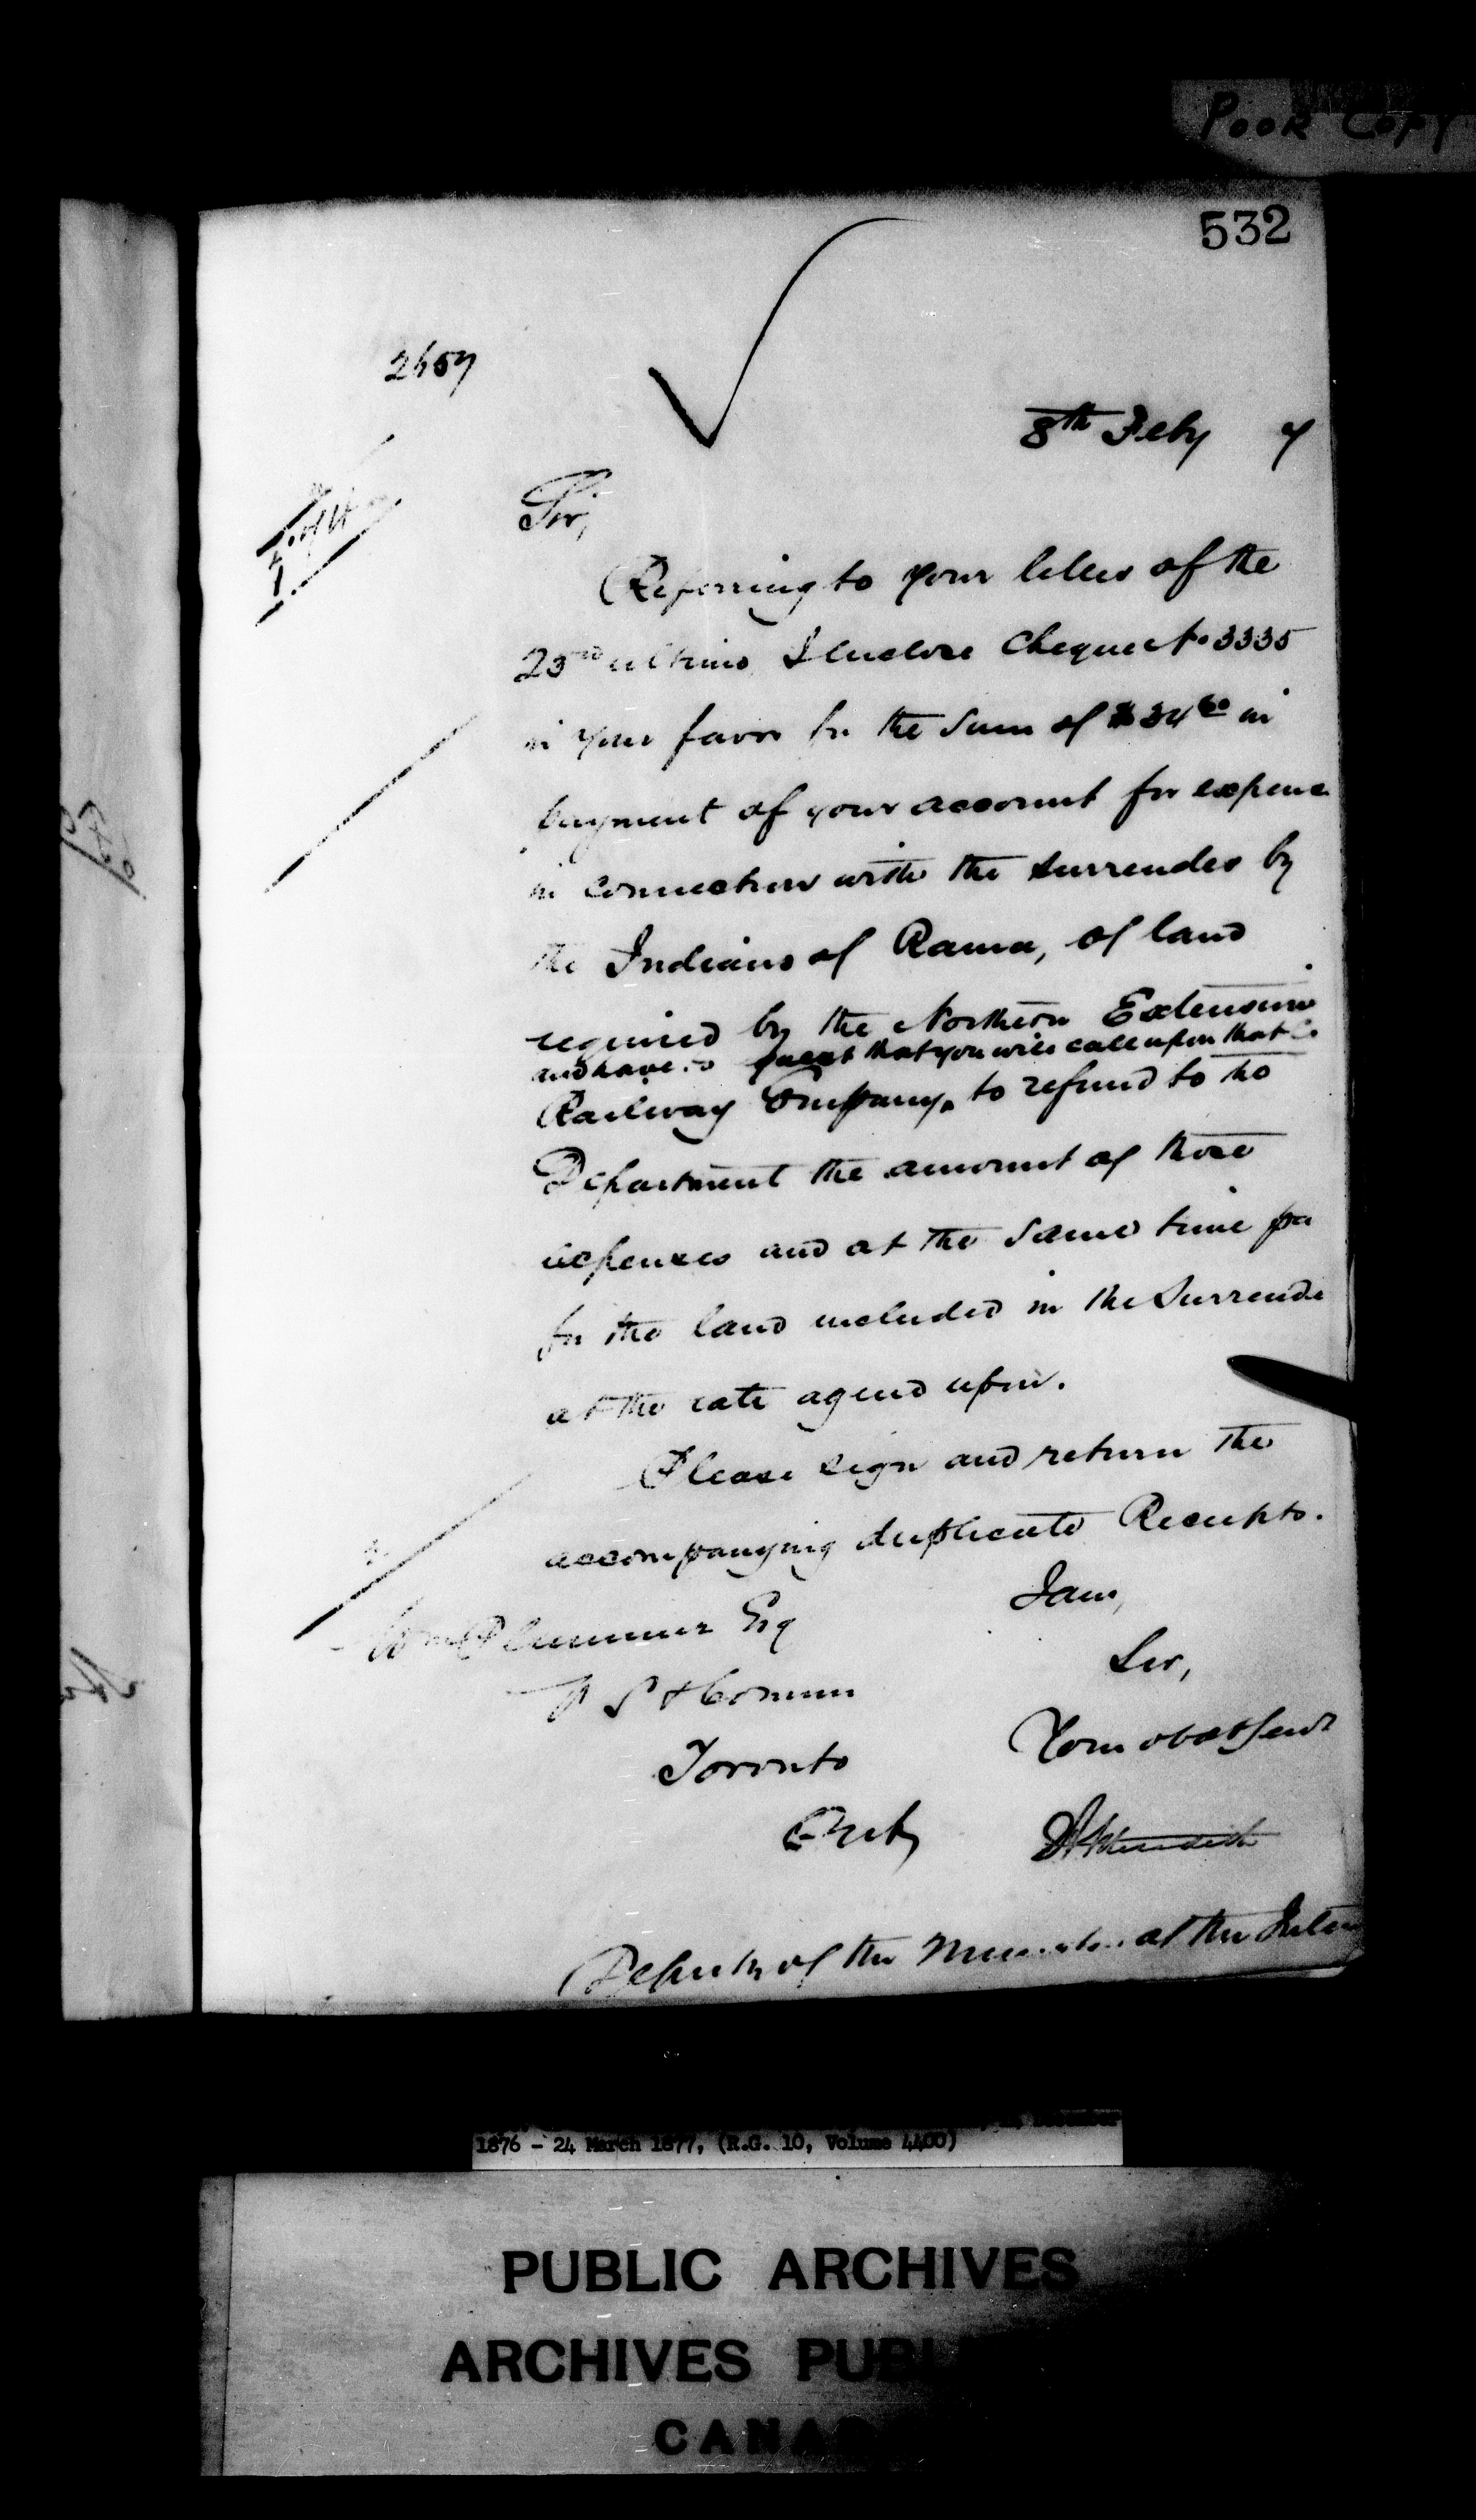 POOR COPY
532
2657
8th Feby 7
Sir,
Referring to your letter of the
23rd ultimo I enclose Cheque No 3335
in your favor for the Sum of $34 60 in
payment of your account for expense
in connection with the surrender by
the Indians of Rama, of land
required by the Northern Extension
and have to request that you will call upon that Co
Railway Company, to refund to the
Department the amount of those
expenses and at the same time pa
for the land included in the Surrende
at the rate agreed upon.
Please sign and return the
accompanying duplicate Receipts.
I am,
Wm Plummer Esq
Sir,
Toronto
Your obdt Servt
Deputy of the Minister of the Inter
1876 - 24 March 1877, (R.G. 10, Volume 4400)
PUBLIC ARCHIVES
ARCHIVES PUBL
CANA